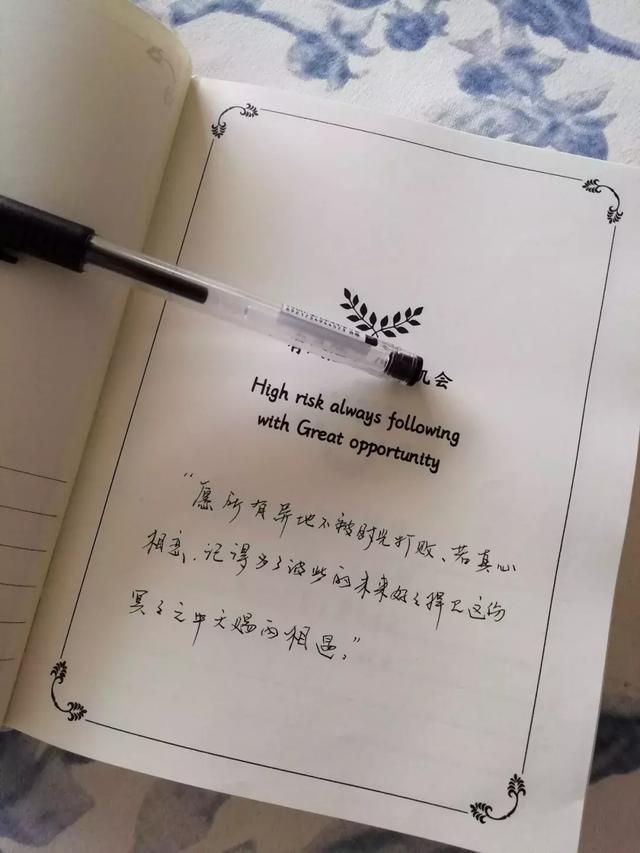 机会
High risk always following
with Great opportunity
“愿所有异地不被时光打败、若真心
相恋、记得为了彼些的未来好々捍卫这份
冥々之中天赐的相遇。”